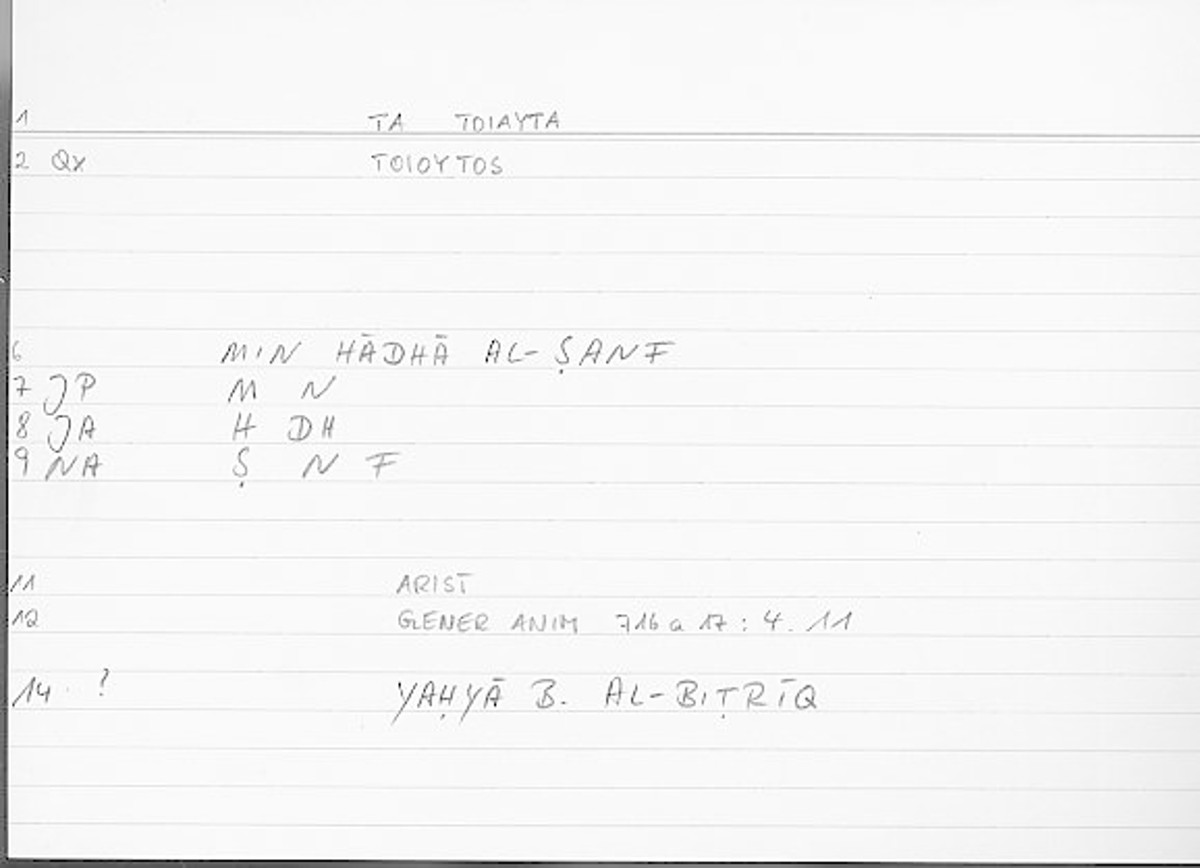 1 TA TOIAYTA
2 Qx TOIOYTOS
6 MIN HĀDHĀ AL-ṢANF
7 JP M N
8 JA H DH
9 NA Ṣ N F
11 ARIST
12 GENER ANIM 716 a 17 : 4. 11
14 ? YAḤYĀ B. AL-BIṬRĪQ